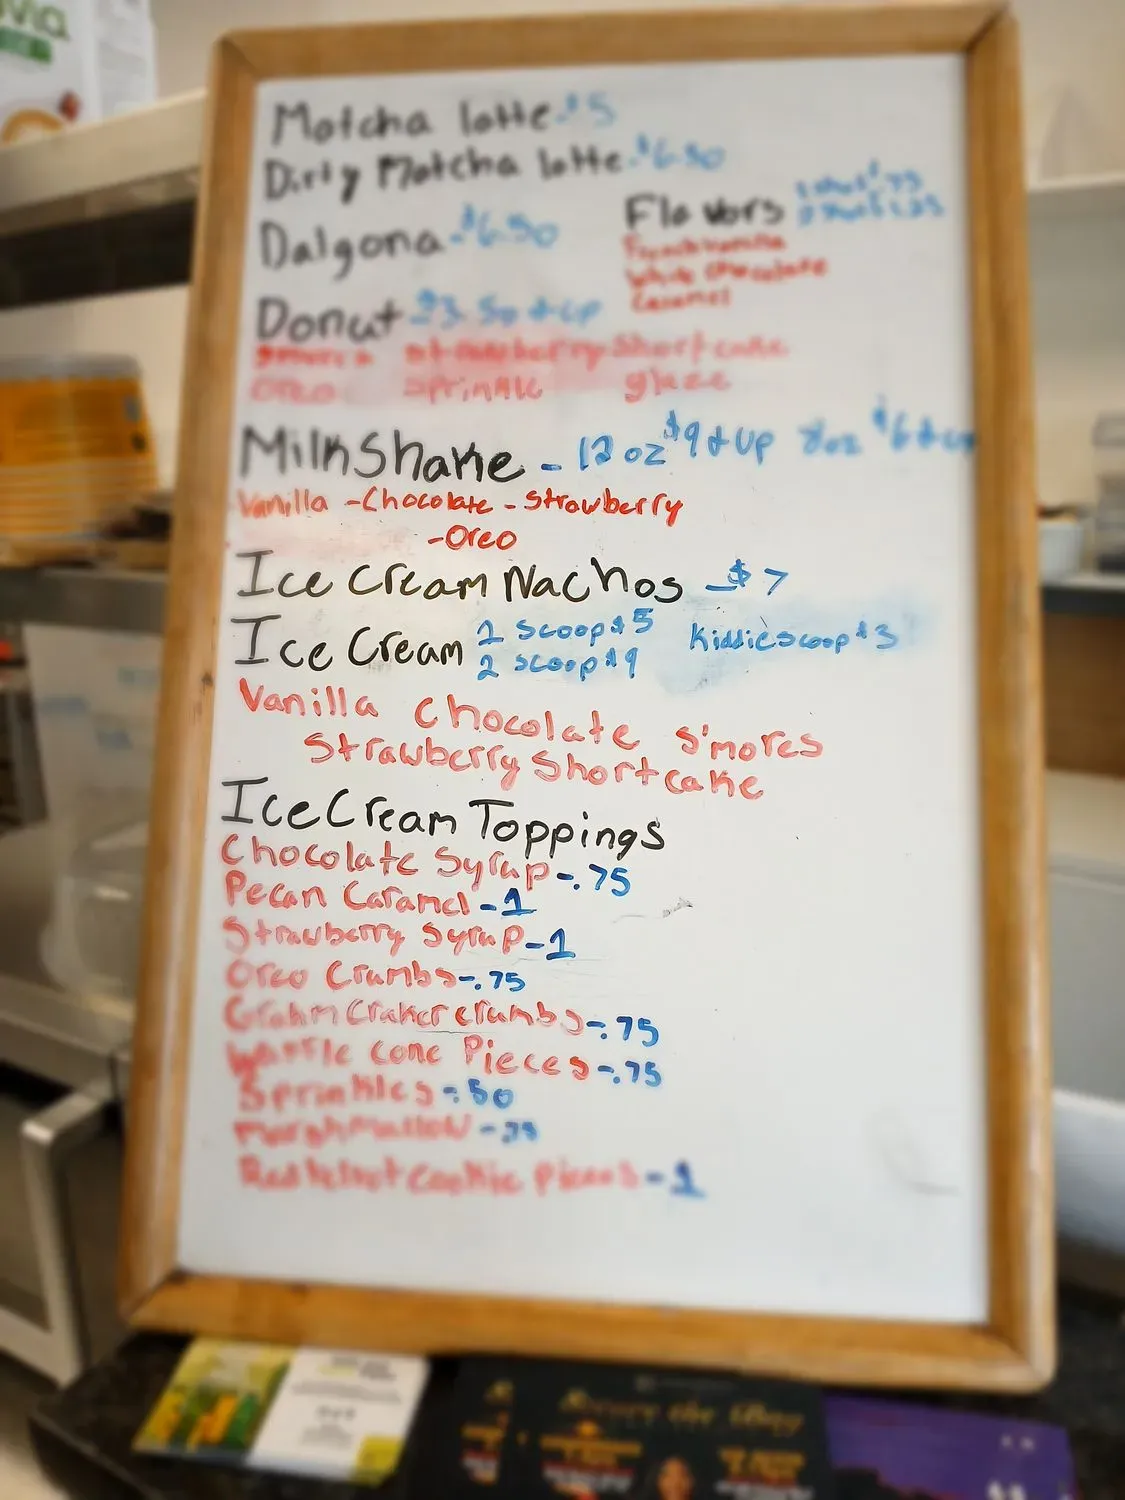 Matcha latte-$5
Dirty Matcha latte-$6.50
Flavors 1 shot $.75
2 shot $1.25
Dalgona-$6.50
French vanilla
White chocolate
Caramel
Donut-$3.50 & up
s'mores strawberry Shortcake
Oreo sprinkle glaze
MilkShake - 12 oz $9 & up 8oz $6 & up
Vanilla -Chocolate - Strawberry
-Oreo
Ice Cream Nachos -$7
Ice Cream 1 scoop $5 Kiddie scoop $3
2 scoop $9
Vanilla Chocolate s'mores
Strawberry Shortcake
Ice Cream Toppings
Chocolate Syrup-.75
Pecan Caramel-1
Strawberry Syrup-1
Oreo Crumbs-.75
Grahm Craker crumbs-.75
Waffle cone Pieces-.75
Sprinkles-.50
Marshmallow-.75
Red Velvet Cookie Pieces-1